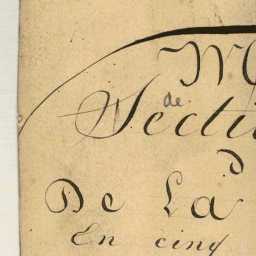 de
Secti
De La
En cinq